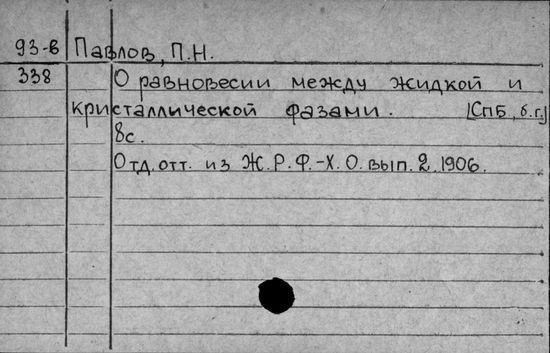 93-в Павлов, П.Н.
338 О равновесии между жидкой и
кристаллической фазами. [СПБ, б.г.]
8с.
Отд. отт. из Ж.Р.Ф.-Х.О. вып. 2. 1906.